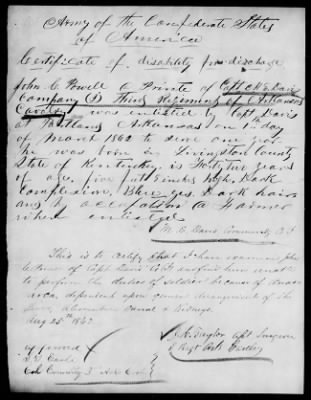 Army of the Confederate States
of America
Certificate of disability for discharge
John C. Powell a Private of Capt M. G. Davis
Company (D) Third Regiment of Arkansas
Cavalry was enlisted by Capt Davis
at Portland Arkansas on 1st day
of March 1862 to serve one year
he was born in Livingston County
State of Kentucky is Thirty two years
of age, five feet 8 inches high Dark
complexion, Blue eyes Dark hair
and by occupation a Farmer
when enlisted
Davis Commanding Co. D
This is to certify that I have examined John
C Powell of Capt Davis Co D and find him unable
to perform the duties of soldier because of
dependent upon general derangement of the
Liver, Alimentary Canal & Kidneys.
Aug 25th 1862
Taylor Asst Surgeon
3 Regt Ark Cavalry
approved
Earle
Col Comdg 3d Ark Cav.